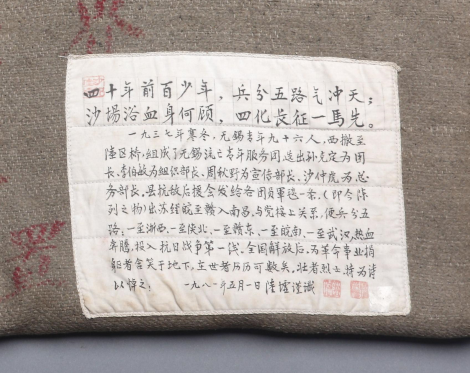 四十年前百少年，兵分五路气冲天；
沙場浴血身何顾，四化长征一馬先。
一九三七年寒冬，无锡青年九十六人，西撤至
陸区桥，组成了无锡流亡青年服务团，选出孙克定为团
长，李伯敏为组织部长，周秋野为宣传部长，沙仲虎为总
务部长。县抗敌后援会发给各团员軍毯一条，（即今陈
列之物）出苏经皖至赣入南昌，与党接上关系，便兵分五
路，一至浙西、一至陕北、一至赣东、一至皖南、一至武汉，热血
奔腾，投入抗日战争第一线。全国解放后，为革命事业捐
躯者含笑于地下，在世者历历可数矣，壮者烈士
以悼之。 一九八一年五月一日 謹識